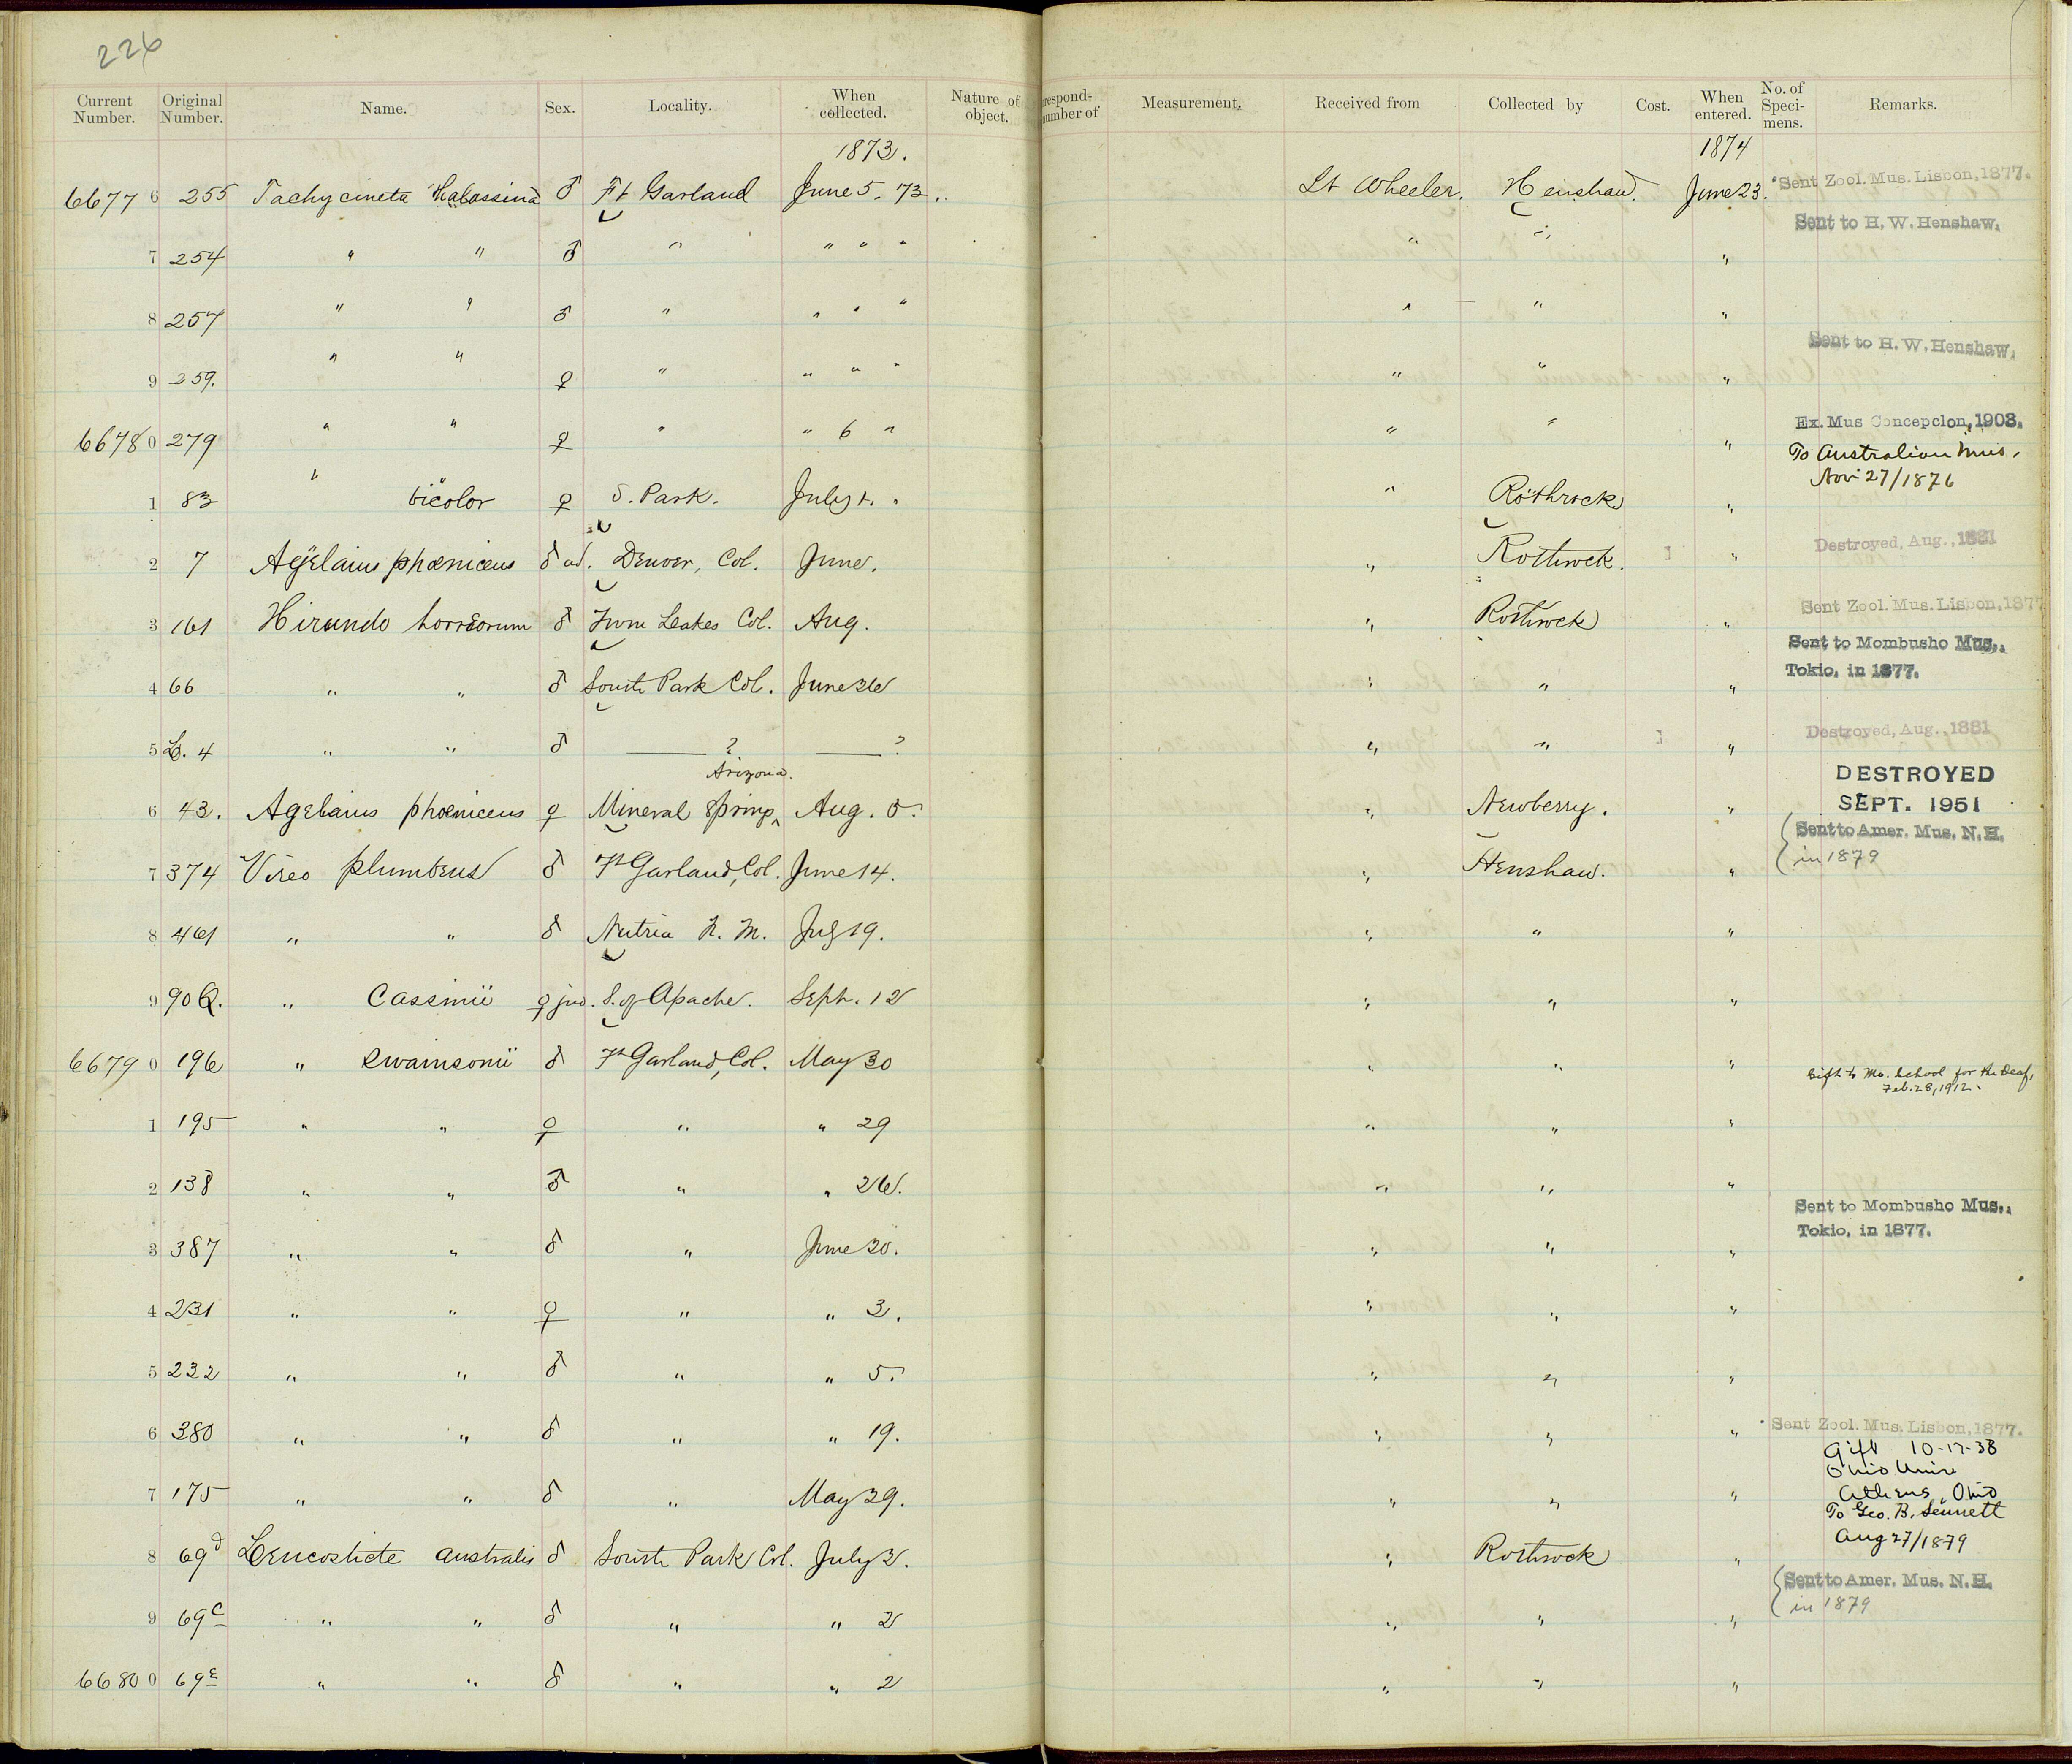 226
Current Number. Original Number. Name. Sex. Locality. When collected. Nature of object. respond- umber of Measurement. Received from Collected by Cost. When entered. No. of Speci- mens. Remarks.
1873. 1874
6677 6 255 Tachycineta thalassina ♂ Ft Garland June 5. 73. Lt Wheeler. Henshaw. June 23. Sent Zool. Mus. Lisbon, 1877.
Sent to H. W. Henshaw.
7 254 " " ♂ " " " " " " "
8 257 " " ♂ " " " " " " "
Sent to H. W. Henshaw.
9 259. " " ♀ " " " " " " "
Ex. Mus Concepcion, 1903.
6678 0 279 " " ♀ " " 6 " " " " To Australian Mus.
Nov 27/1876
1 83 " bicolor ♀ S. Park. July 1. " " Rothrock "
2 7 Agelaius phœniceus ♂ ad. Denver, Col. June. " Rothrock. " Destroyed, Aug., 1881
3 161 Hirundo horreorum ♂ Twin Lakes Col. Aug. " Rothrock " Sent Zool. Mus. Lisbon, 1877
Sent to Mombusho Mus.,
Tokio, in 1877.
4 66 " " ♂ South Park Col. June 26 " " "
5 L. 4 " " ♂ ? ? " " " Destroyed, Aug., 1881
Arizona.
DESTROYED
SEPT. 1951
6 43. Agelaius phœniceus ♀ Mineral Spring Aug. 5. " Newberry. "
Sent to Amer. Mus. N. H.
in 1879
7 374 Vireo plumbeus ♂ Ft Garland, Col. June 14. " Henshaw. "
8 461 " " ♂ Nutria N. M. July 19. " " "
9 90 Q. " Cassinii ♀ juv. S. of Apache. Sept. 12 " " "
6679 0 196 " Swainsonii ♂ Ft Garland, Col. May 30 " " " Gift to Mo. School for the Deaf,
Feb. 28, 1912.
1 195 " " ♀ " " 29 " " "
2 138 " " ♂ " " 26. " " "
Sent to Mombusho Mus.,
Tokio, in 1877.
3 387 " " ♂ " June 20. " " "
4 231 " " ♀ " " 3. " " "
5 232 " " ♂ " " 5. " " "
6 380 " " ♂ " " 19. " " " Sent Zool. Mus. Lisbon, 1877.
Gift 10-17-38
Ohio Univ
Athens, Ohio
7 175 " " ♂ " May 29. " " "
To Geo. B. Sennett
Aug 27/1879
8 69d Leucosticte australis ♂ South Park Col. July 2. " Rothrock "
Sent to Amer. Mus. N. H.
in 1879
9 69c " " ♂ " " 2 " " "
6680 0 69e " " ♂ " " 2 " " "